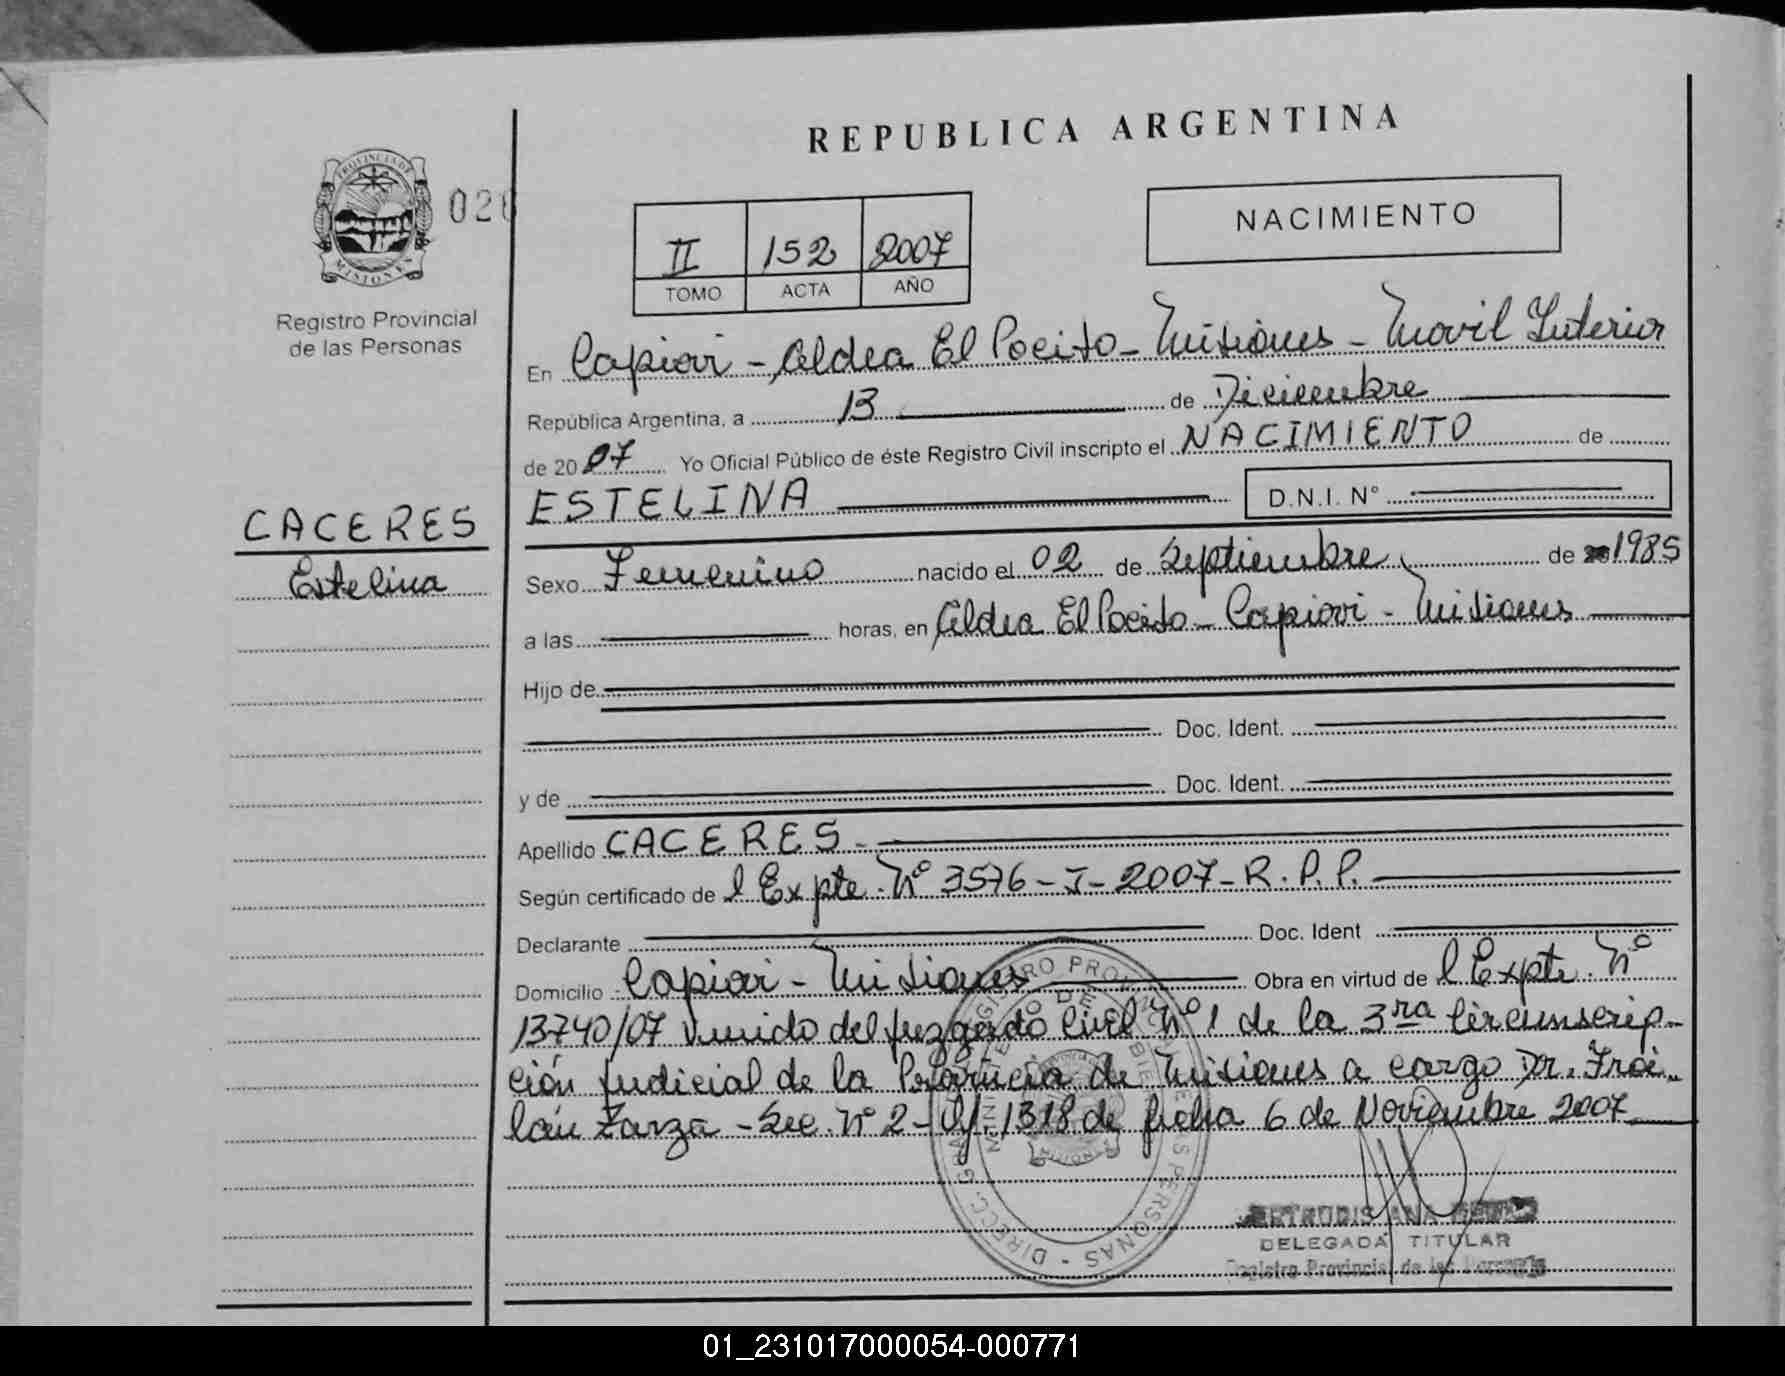 REPUBLICA ARGENTINA
PROVINCIA DE
MISIONES
Registro Provincial
de las Personas
NACIMIENTO
II 152 2007
TOMO ACTA AÑO
En Capiovi - Aldea El Pocito - Misiones - Movil Interior
República Argentina, a 13 de Diciembre
de 2007 Yo Oficial Público de éste Registro Civil inscripto el NACIMIENTO de
ESTELINA D.N.I. N°
CACERES
Estelina
Sexo Femenino nacido el 02 de Septiembre de 1985
a las horas, en Aldea El Pocito - Capiovi - Misiones
Hijo de
Doc. Ident.
y de Doc. Ident.
Apellido CACERES -
Según certificado de l Expte. N° 3576 - J - 2007 - R. P. P.
Declarante Doc. Ident
Domicilio Capiovi - Misiones Obra en virtud de l Expte. N°
13740/07 venido del Juzgado Civil N° 1 de la 3ra Circunscrip-
ción Judicial de la Provincia de Misiones a cargo Dr. Froi-
lán Zarza - Sec. N° 2 - Of. 1318 de fecha 6 de Noviembre 2007
ANA
DELEGADA TITULAR
Registro Provincial de las Personas
01_231017000054-000771